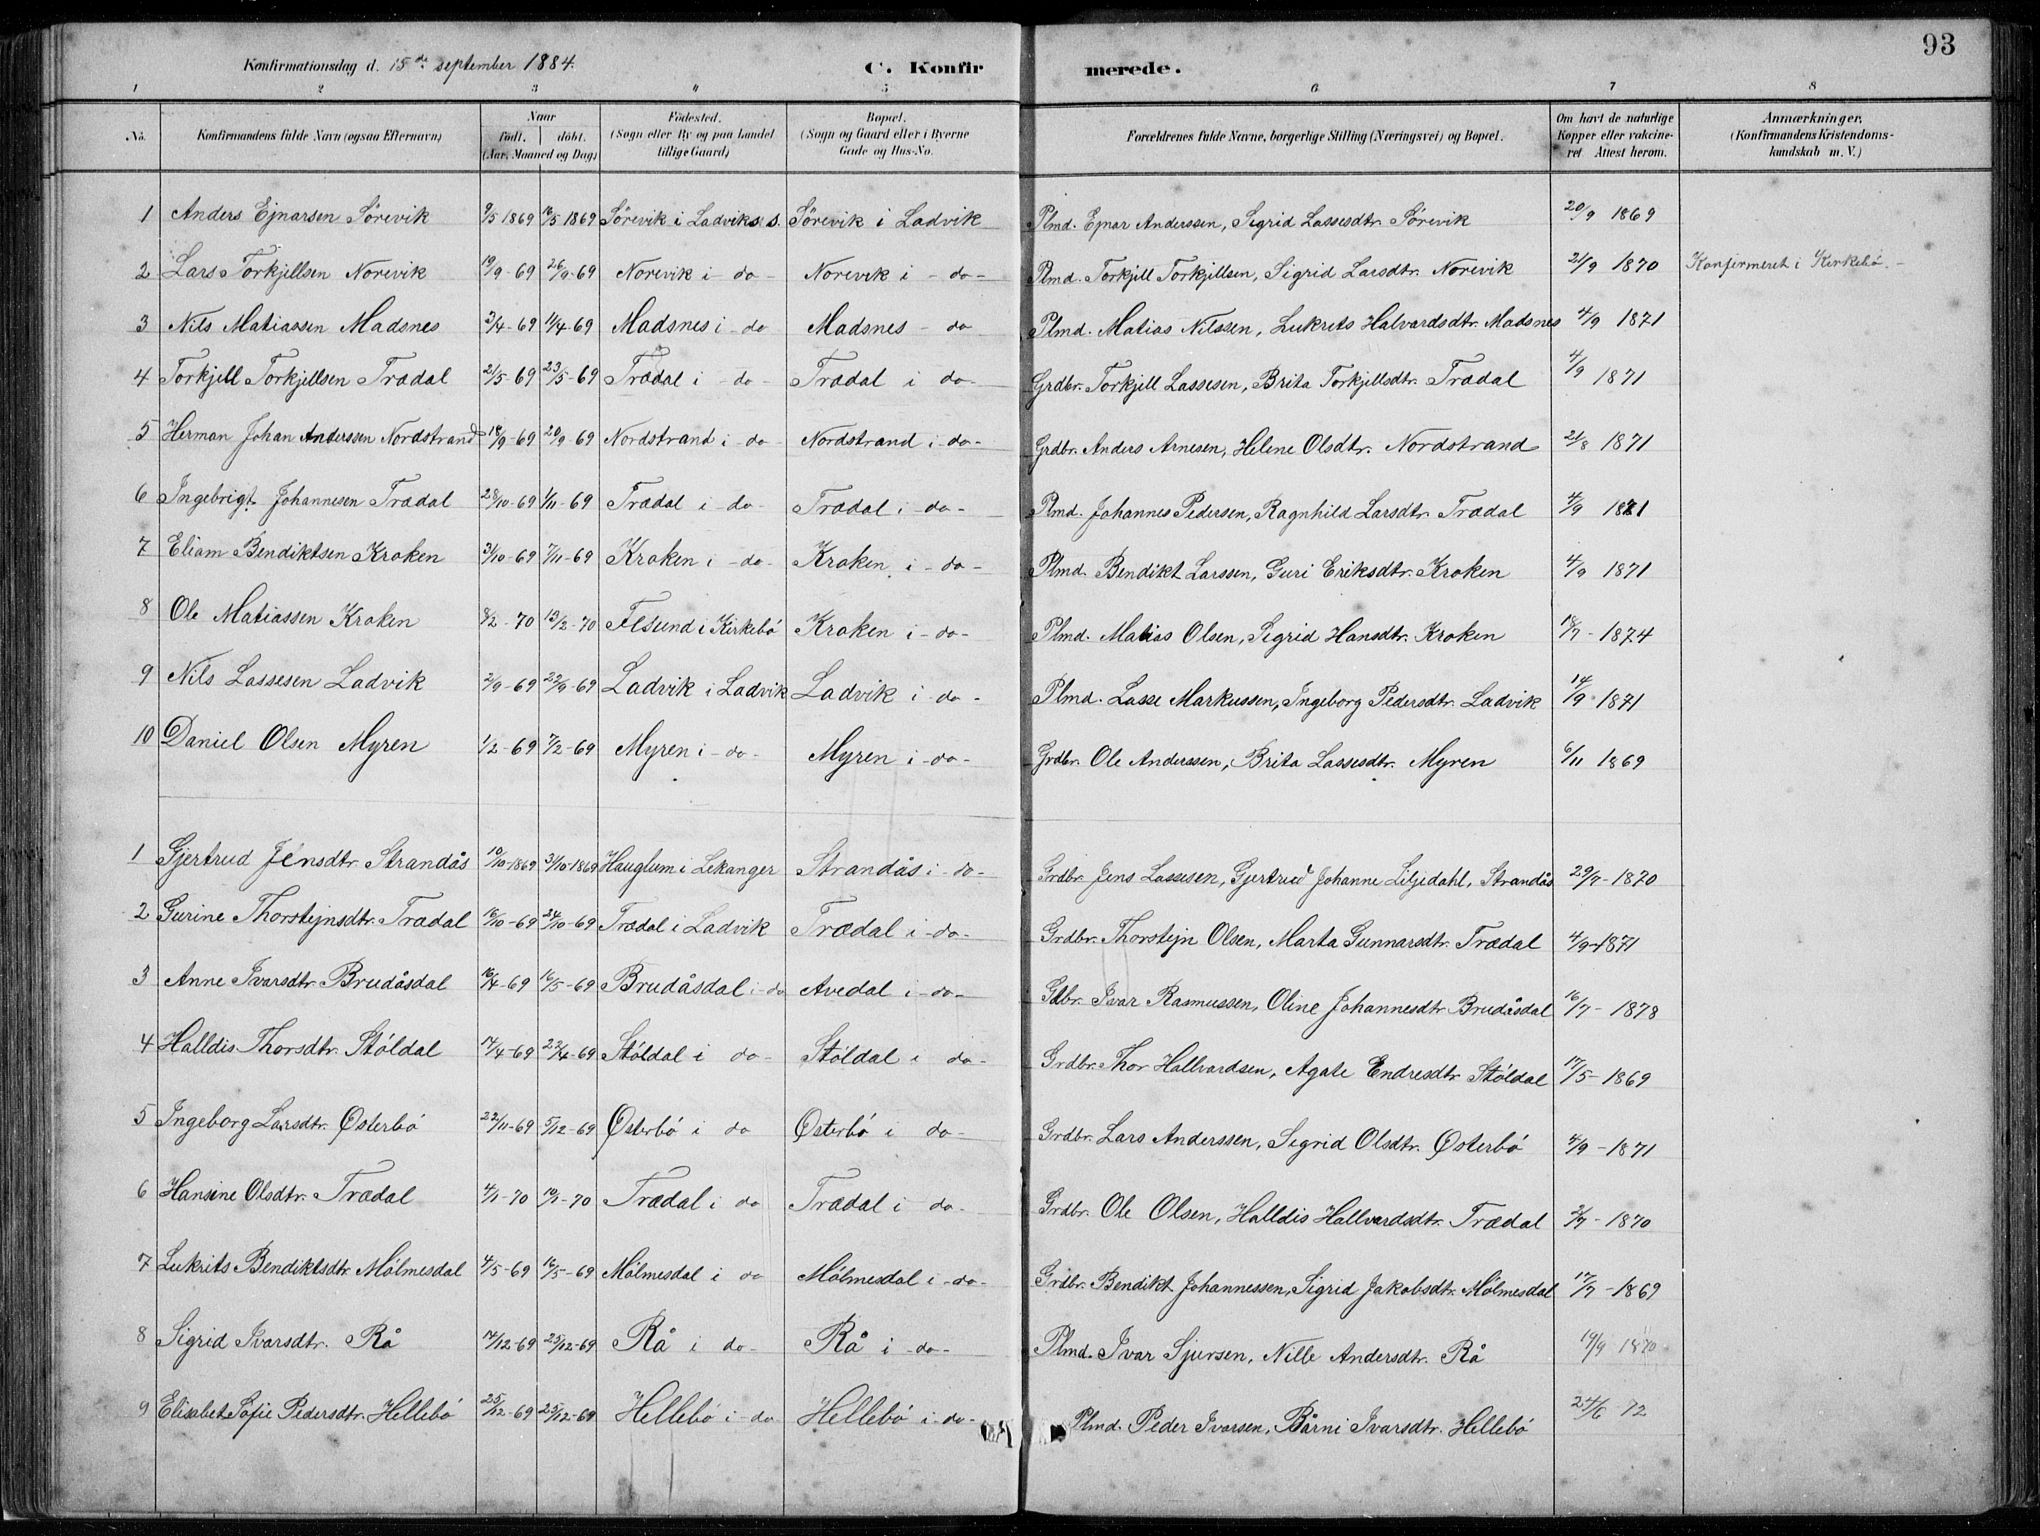 93
Konfirmationsdag d. 15de september 1884.
C. Konfirmerede.
1 2 3 4 5 6 7 8
No. Konfirmandens fulde Navn (ogsaa Efternavn) Naar født. døbt. (Aar, Maaned og Dag) Fødested. (Sogn eller By og paa Landet tillige Gaard) Bopæl. (Sogn og Gaard eller i Byerne Gade og Hus-No. Forældrenes fulde Navne, borgerlige Stilling (Næringsvei) og Bopæl. Om havt de naturlige Kopper eller vakcineret. Attest herom. Anmærkninger, (Konfirmandens Kristendomskundskab m. V.)
1 Anders Ejnarsen Sörevik 9/5 1869 16/5 1869 Sörevik i Ladviks s. Sörevik i Ladvik Plmd. Ejnar Anderssen, Sigrid Lassesdtr. Sörevik 20/9 1869
2 Lars Torkjellsen Norevik 19/9-69 26/9-69 Norevik i - do - Norevik i - do - Plmd. Torkjell Torkjellsen, Sigrid Larsdtr. Norevik 21/9 1870 Konfirmeret i Kirkebö. -
3 Nils Matiassen Madsnes 3/4-69 11/4-69 Madsnes i - do Madsnes - do Plmd. Matias Nilssen, Lukrets Halvardsdtr. Madsnes 4/9 1871
4 Torkjell Torkjellsen Trædal 21/5-69 23/5-69 Trædal i - do - Trædal i do - Grdbr. Torkjell Lassesen, Brita Torkjellsdtr. Trædal 4/9 1871
5 Herman Johan Anderssen Nordstrand 18/9-69 20/9-69 Nordstrand i - do Nordstrand i - do - Grdbr. Anders Arnesen, Helene Olsdtr. Nordstrand 21/8 1871
6 Ingebrigt Johannesen Trædal 28/10-69 1/11-69 Trædal i - do - Trædal i - do - Plmd. Johannes Pedersen, Ragnhild Larsdtr. Trædal 4/9 1871
7 Eliam Bendiktsen Kroken 31/10-69 7/11-69 Kroken i - do - Kroken i - do - Plmd. Bendikt Larssen, Guri Eriksdtr. Kroken 4/9 1871
8 Ole Matiassen Kroken 8/2-70 13/2-70 i Kirkebö Kroken i - do - Plmd. Matias Olsen, Sigrid Hansdtr. Kroken 18/7-1874
9 Nils Lassesen Ladvik 2/9-69 22/9-69 Ladvik i Ladvik Ladvik i - do - Plmd. Lasse Markussen, Ingeborg Pedersdtr. Ladvik 14/9 1871
10 Daniel Olsen Myren 1/2-69 7/2-69 Myren i - do - Myren i - do - Grdbr. Ole Anderssen, Brita Lassesdtr. Myren 6/11 1869
1 Gjertrud Jensdtr. Strandås 10/10-1869 31/10-1869 Hauglum i Lekanger Strandås i - do - Grdbr. Jens Lassesen, Gjertrud Johanne Liljedahl, Strandås 29/7-1870
2 Gurine Thorstejnsdtr. Trædal 16/10-69 24/10-69 Trædal i Ladvik Trædal i - do - Grdbr. Thorstejn Olsen, Marta Gunnarsdtr. Trædal 4/9-1871
3 Anne Ivarsdtr. Brudåsdal 16/4-69 16/5-69 Brudåsdal i - do Avedal i - do - Gdbr. Ivar Rasmussen, Oline Johannesdtr. Brudåsdal 16/7-1878
4 Halldis Thorsdtr. Stöldal 17/4-69 22/4-69 Stöldal i do - Stöldal i do - Grdbr. Thor Hallvardsen, Agate Endresdtr. Stöldal 17/5-1869
5 Ingeborg Larsdtr. Østerbö 22/11-69 5/12-69 Østerbö i do Østerbö i do - Grdbr. Lars Anderssen, Sigrid Olsdtr. Østerbö 4/9-1871
6 Hansine Olsdtr. Trædal 4/1-70 10/1-70 Trædal i do Trædal i do - Grdbr. Ole Olsen, Halldis Hallvardsdtr. Trædal 2/7-1870
7 Lukrits Bendiktsdtr. Mölmesdal 4/5-69 16/5-69 Mölmesdal i do Mölmesdal i - do - Grdbr. Bendikt Johannessen, Sigrid Jakobsdtr. Mölmesdal 17/7-1869
8 Sigrid Ivarsdtr. Rå 17/12-69 25/12-69 Rå i do - Rå i - do - Plmd. Ivar Sjursen, Nille Andersdtr. Rå 19/9 1870
9 Elisabet Sofie Pedersdtr. Hellebö 25/12-69 25/12-69 Hellebö i - do Hellebö i - do - Plmd. Peder Ivarsen, Bårni Ivarsdtr. Hellebö 24/6 72